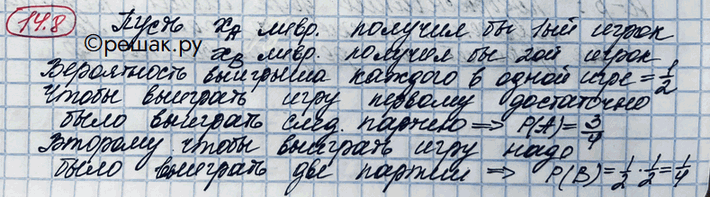 14.8 Пусть x_A левр. получил бы 1ый игрок
©решак.ру x_B левр. получил бы 2ой игрок
Вероятность выигрыша каждого в одной игре = 1/2
Чтобы выиграть игру первому достаточно
было выиграть след. партию ⇒ P(A) = 3/4
Второму чтобы выиграть игру надо
было выиграть две партии ⇒ P(B) = 1/2 · 1/2 = 1/4